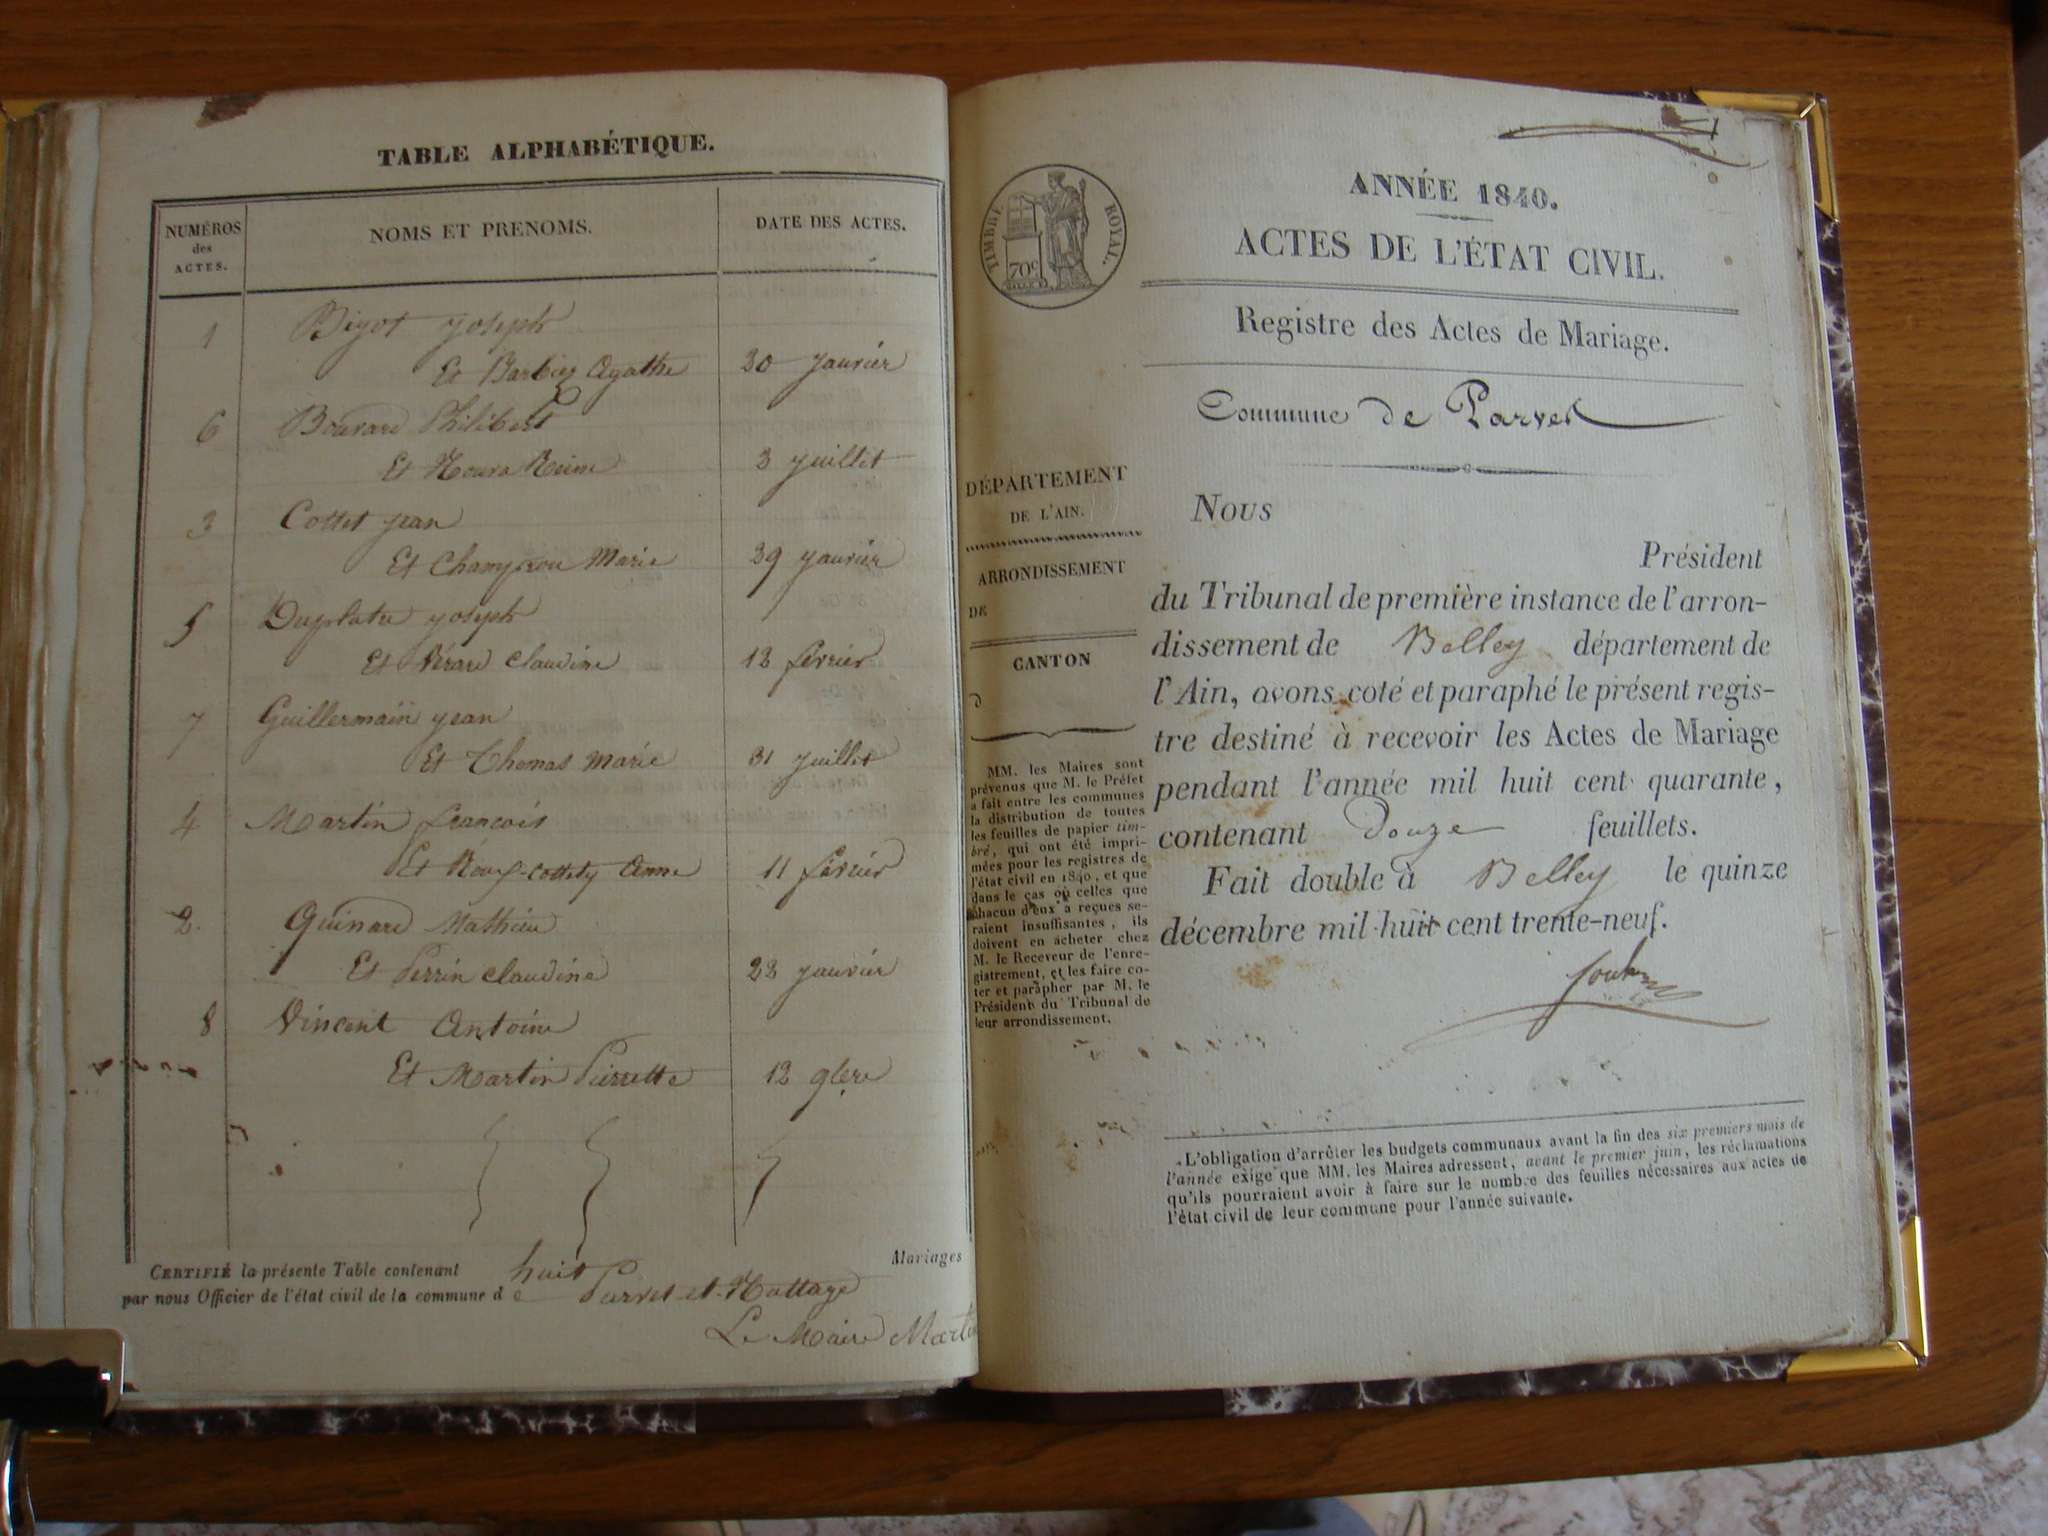 TABLE ALPHABÉTIQUE.
NUMÉROS des ACTES.
NOMS ET PRENOMS.
DATE DES ACTES.
1 Bigot joseph
Et Barbier Agathe 30 janvier
6 Bouvard Philibert
Et 3 juillet
3 Cottet jean
Et Champrou Marie 29 janvier
5 Duplatre joseph
Et Pérard claudine 12 février
7 Guillermain jean
Et Thomas Marie 31 juillet
4 Martin françois
Et Anne 11 février
2. Quinard Mathieu
Et Perrin claudine 22 janvier
8 Vincent Antoine
Et Martin Pierrette 12 9bre
CERTIFIÉ la présente Table contenant huit Mariages
par nous Officier de l'état civil de la commune de Parves et Nattage
Le Maire Martin
1
TIMBRE ROYAL.
70c
ANNÉE 1840.
ACTES DE L'ÉTAT CIVIL.
Registre des Actes de Mariage.
Commune de Parves
DÉPARTEMENT
DE L'AIN.
ARRONDISSEMENT
DE
CANTON
d
MM. les Maires sont
prévenus que M. le Préfet
a fait entre les communes
la distribution de toutes
les feuilles de papier tim-
bré, qui ont été impri-
mées pour les registres de
l'état civil en 1840, et que
dans le cas où celles que
chacun d'eux a reçues se-
raient insuffisantes, ils
doivent en acheter chez
M. le Receveur de l'enre-
gistrement, et les faire co-
ter et parapher par M. le
Président du Tribunal de
leur arrondissement.
Nous
Président
du Tribunal de première instance de l'arron-
dissement de Belley département de
l'Ain, avons coté et paraphé le présent regis-
tre destiné à recevoir les Actes de Mariage
pendant l'année mil huit cent quarante,
contenant douze feuillets.
Fait double à Belley le quinze
décembre mil huit cent trente-neuf.
L'obligation d'arrêter les budgets communaux avant la fin des six premiers mois de
l'année exige que MM. les Maires adressent, avant le premier juin, les réclamations
qu'ils pourraient avoir à faire sur le nombre des feuilles nécessaires aux actes de
l'état civil de leur commune pour l'année suivante.